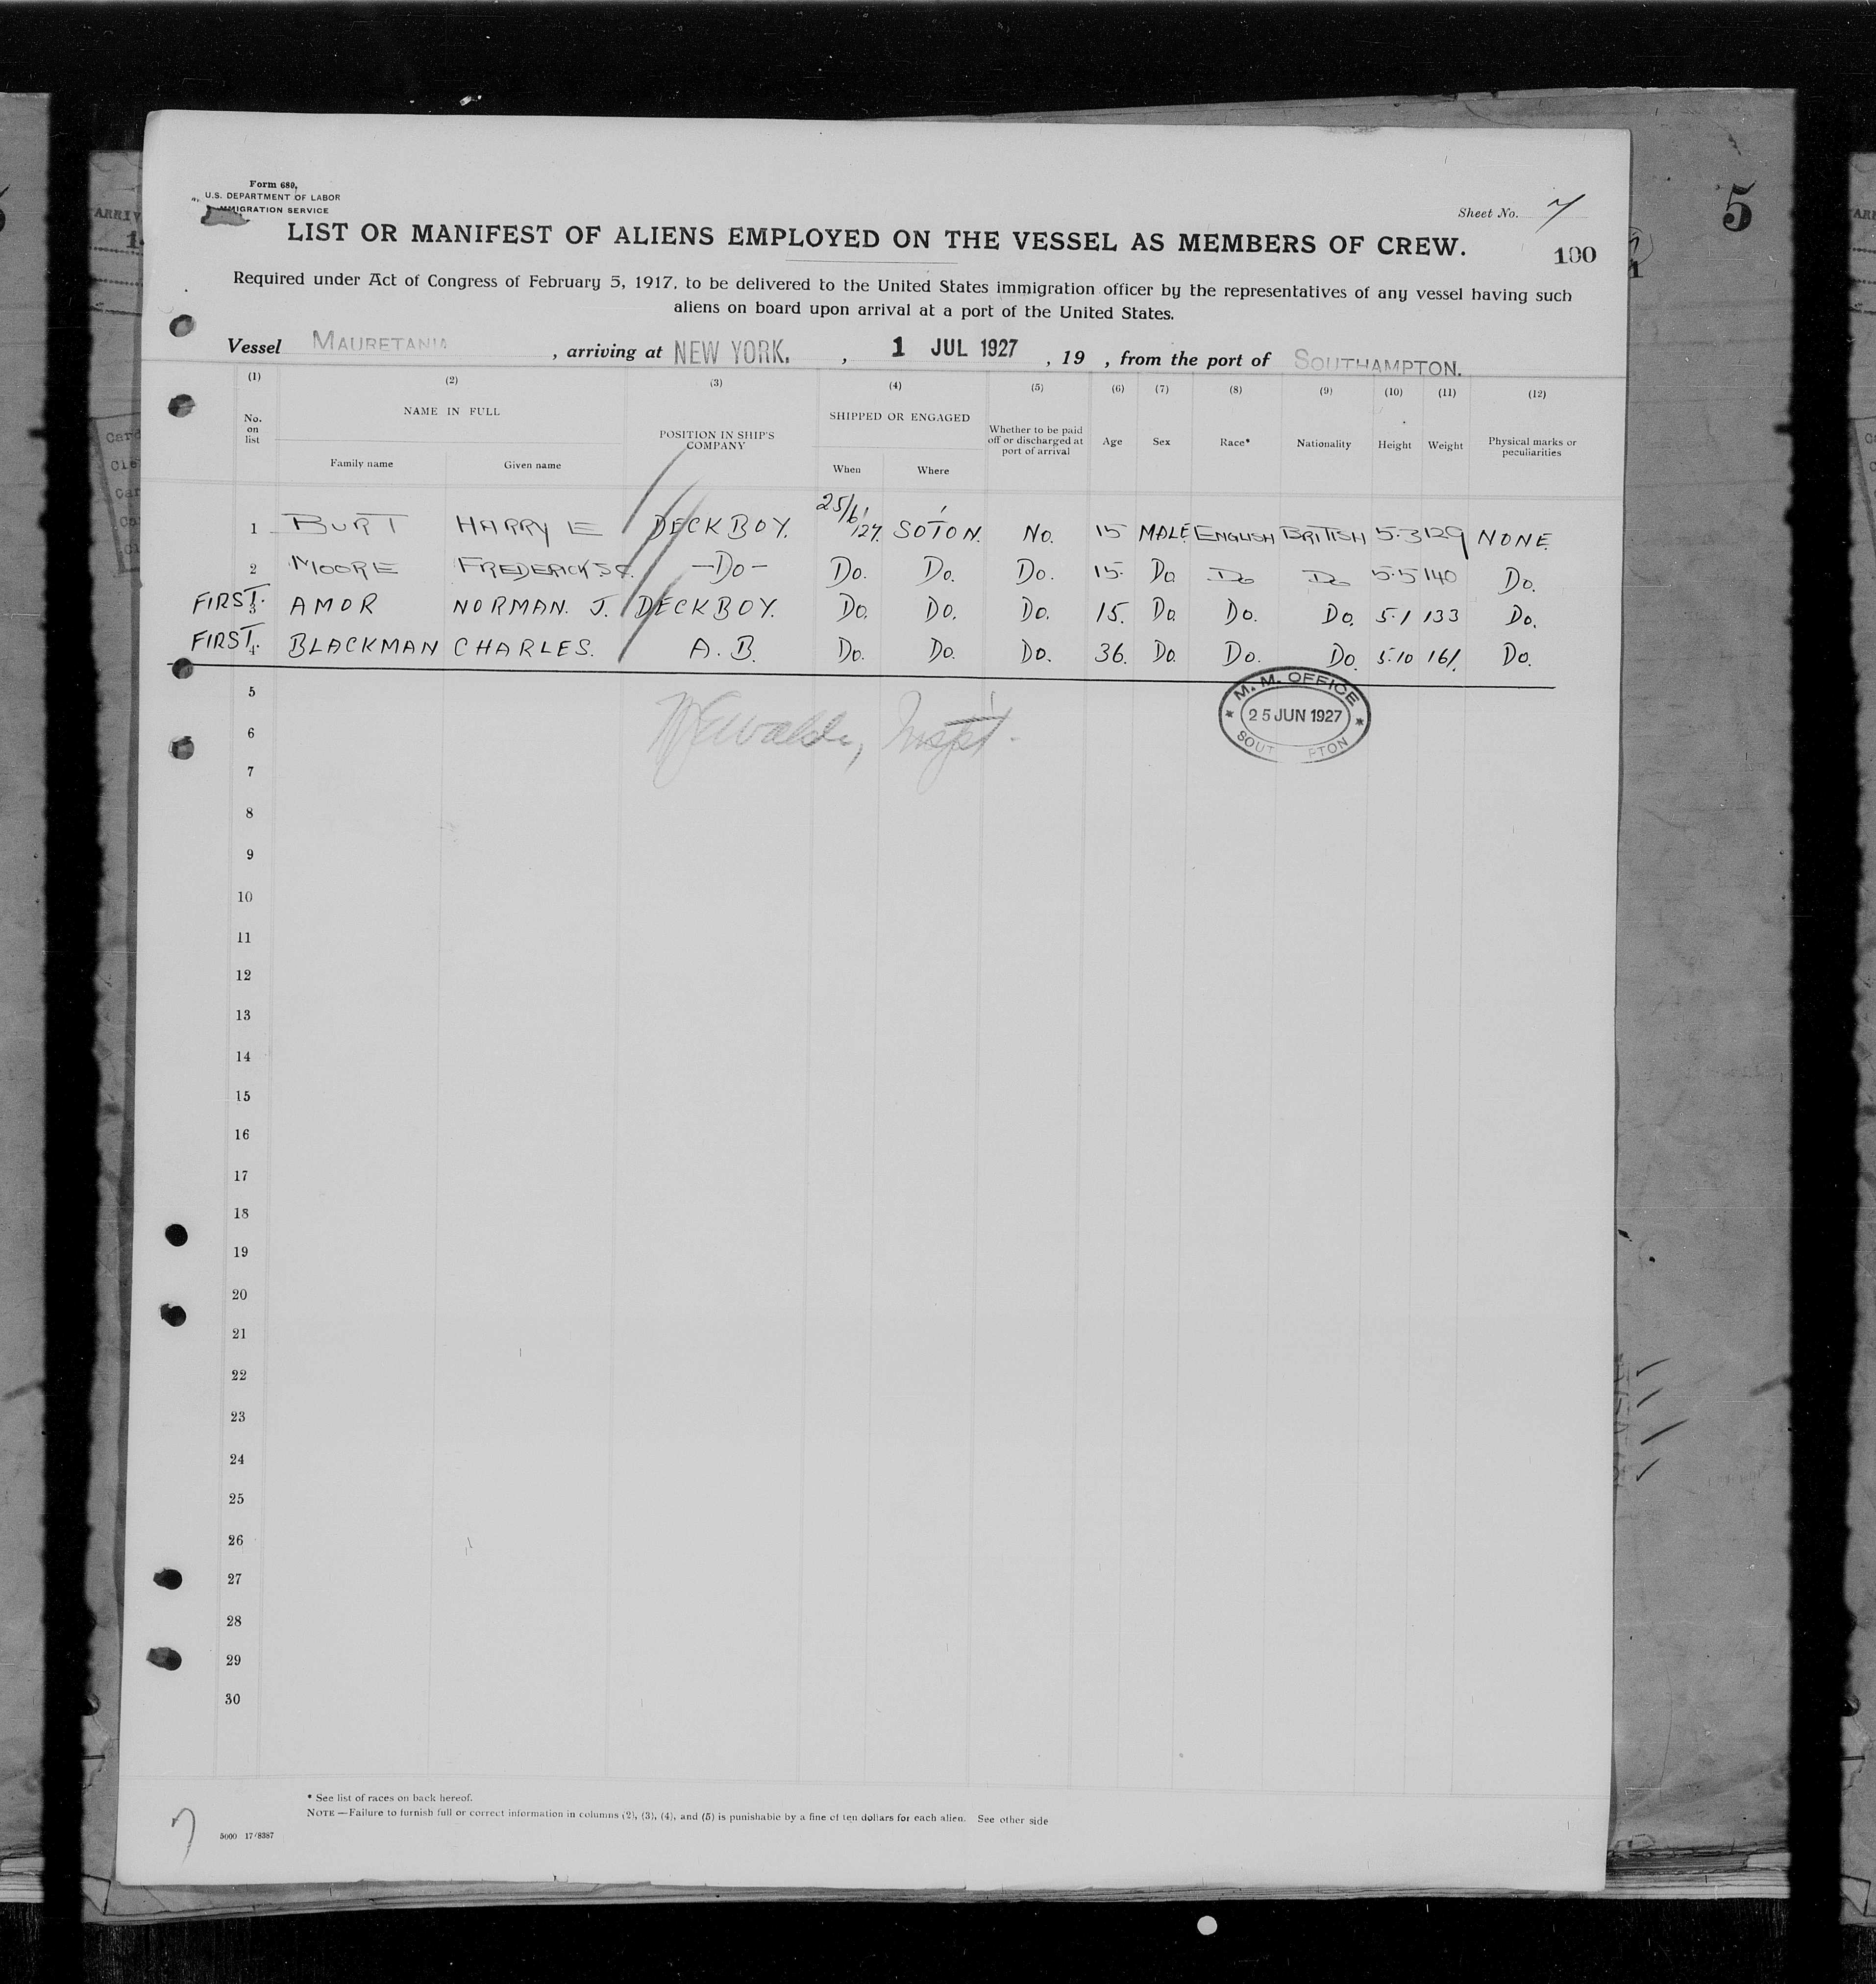 Form 689,
U.S. DEPARTMENT OF LABOR
IMMIGRATION SERVICE
Sheet No. 7
LIST OR MANIFEST OF ALIENS EMPLOYED ON THE VESSEL AS MEMBERS OF CREW.
100
5
Required under Act of Congress of February 5, 1917, to be delivered to the United States immigration officer by the representatives of any vessel having such
aliens on board upon arrival at a port of the United States.
Vessel MAURETANIA , arriving at NEW YORK. , 1 JUL 1927 , 19 , from the port of SOUTHAMPTON.
(1) (2) (3) (4) (5) (6) (7) (8) (9) (10) (11) (12)
No. on list NAME IN FULL POSITION IN SHIP'S COMPANY SHIPPED OR ENGAGED Whether to be paid off or discharged at port of arrival Age Sex Race* Nationality Height Weight Physical marks or peculiarities
Family name Given name When Where
1 BURT HARRY E DECK BOY. 25/6/27. SOTON. No. 15 MALE ENGLISH BRITISH 5.3 129 NONE.
2 MOORE FREDERICK —Do— Do. Do. Do. 15. Do Do Do 5.5 140 Do.
FIRST. 3 AMOR NORMAN. J. DECK BOY. Do. Do. Do. 15. Do. Do. Do. 5.1 133 Do.
FIRST. 4 BLACKMAN CHARLES. A.B. Do. Do. Do. 36. Do. Do. Do. 5.10 161. Do.
5
M. M. OFFICE
25 JUN 1927
SOUT PTON
6
7
8
9
10
11
12
13
14
15
16
17
18
19
20
21
22
23
24
25
26
27
28
29
30
* See list of races on back hereof.
NOTE —Failure to furnish full or correct information in columns (2), (3), (4), and (5) is punishable by a fine of ten dollars for each alien. See other side
7
5000 17/8387